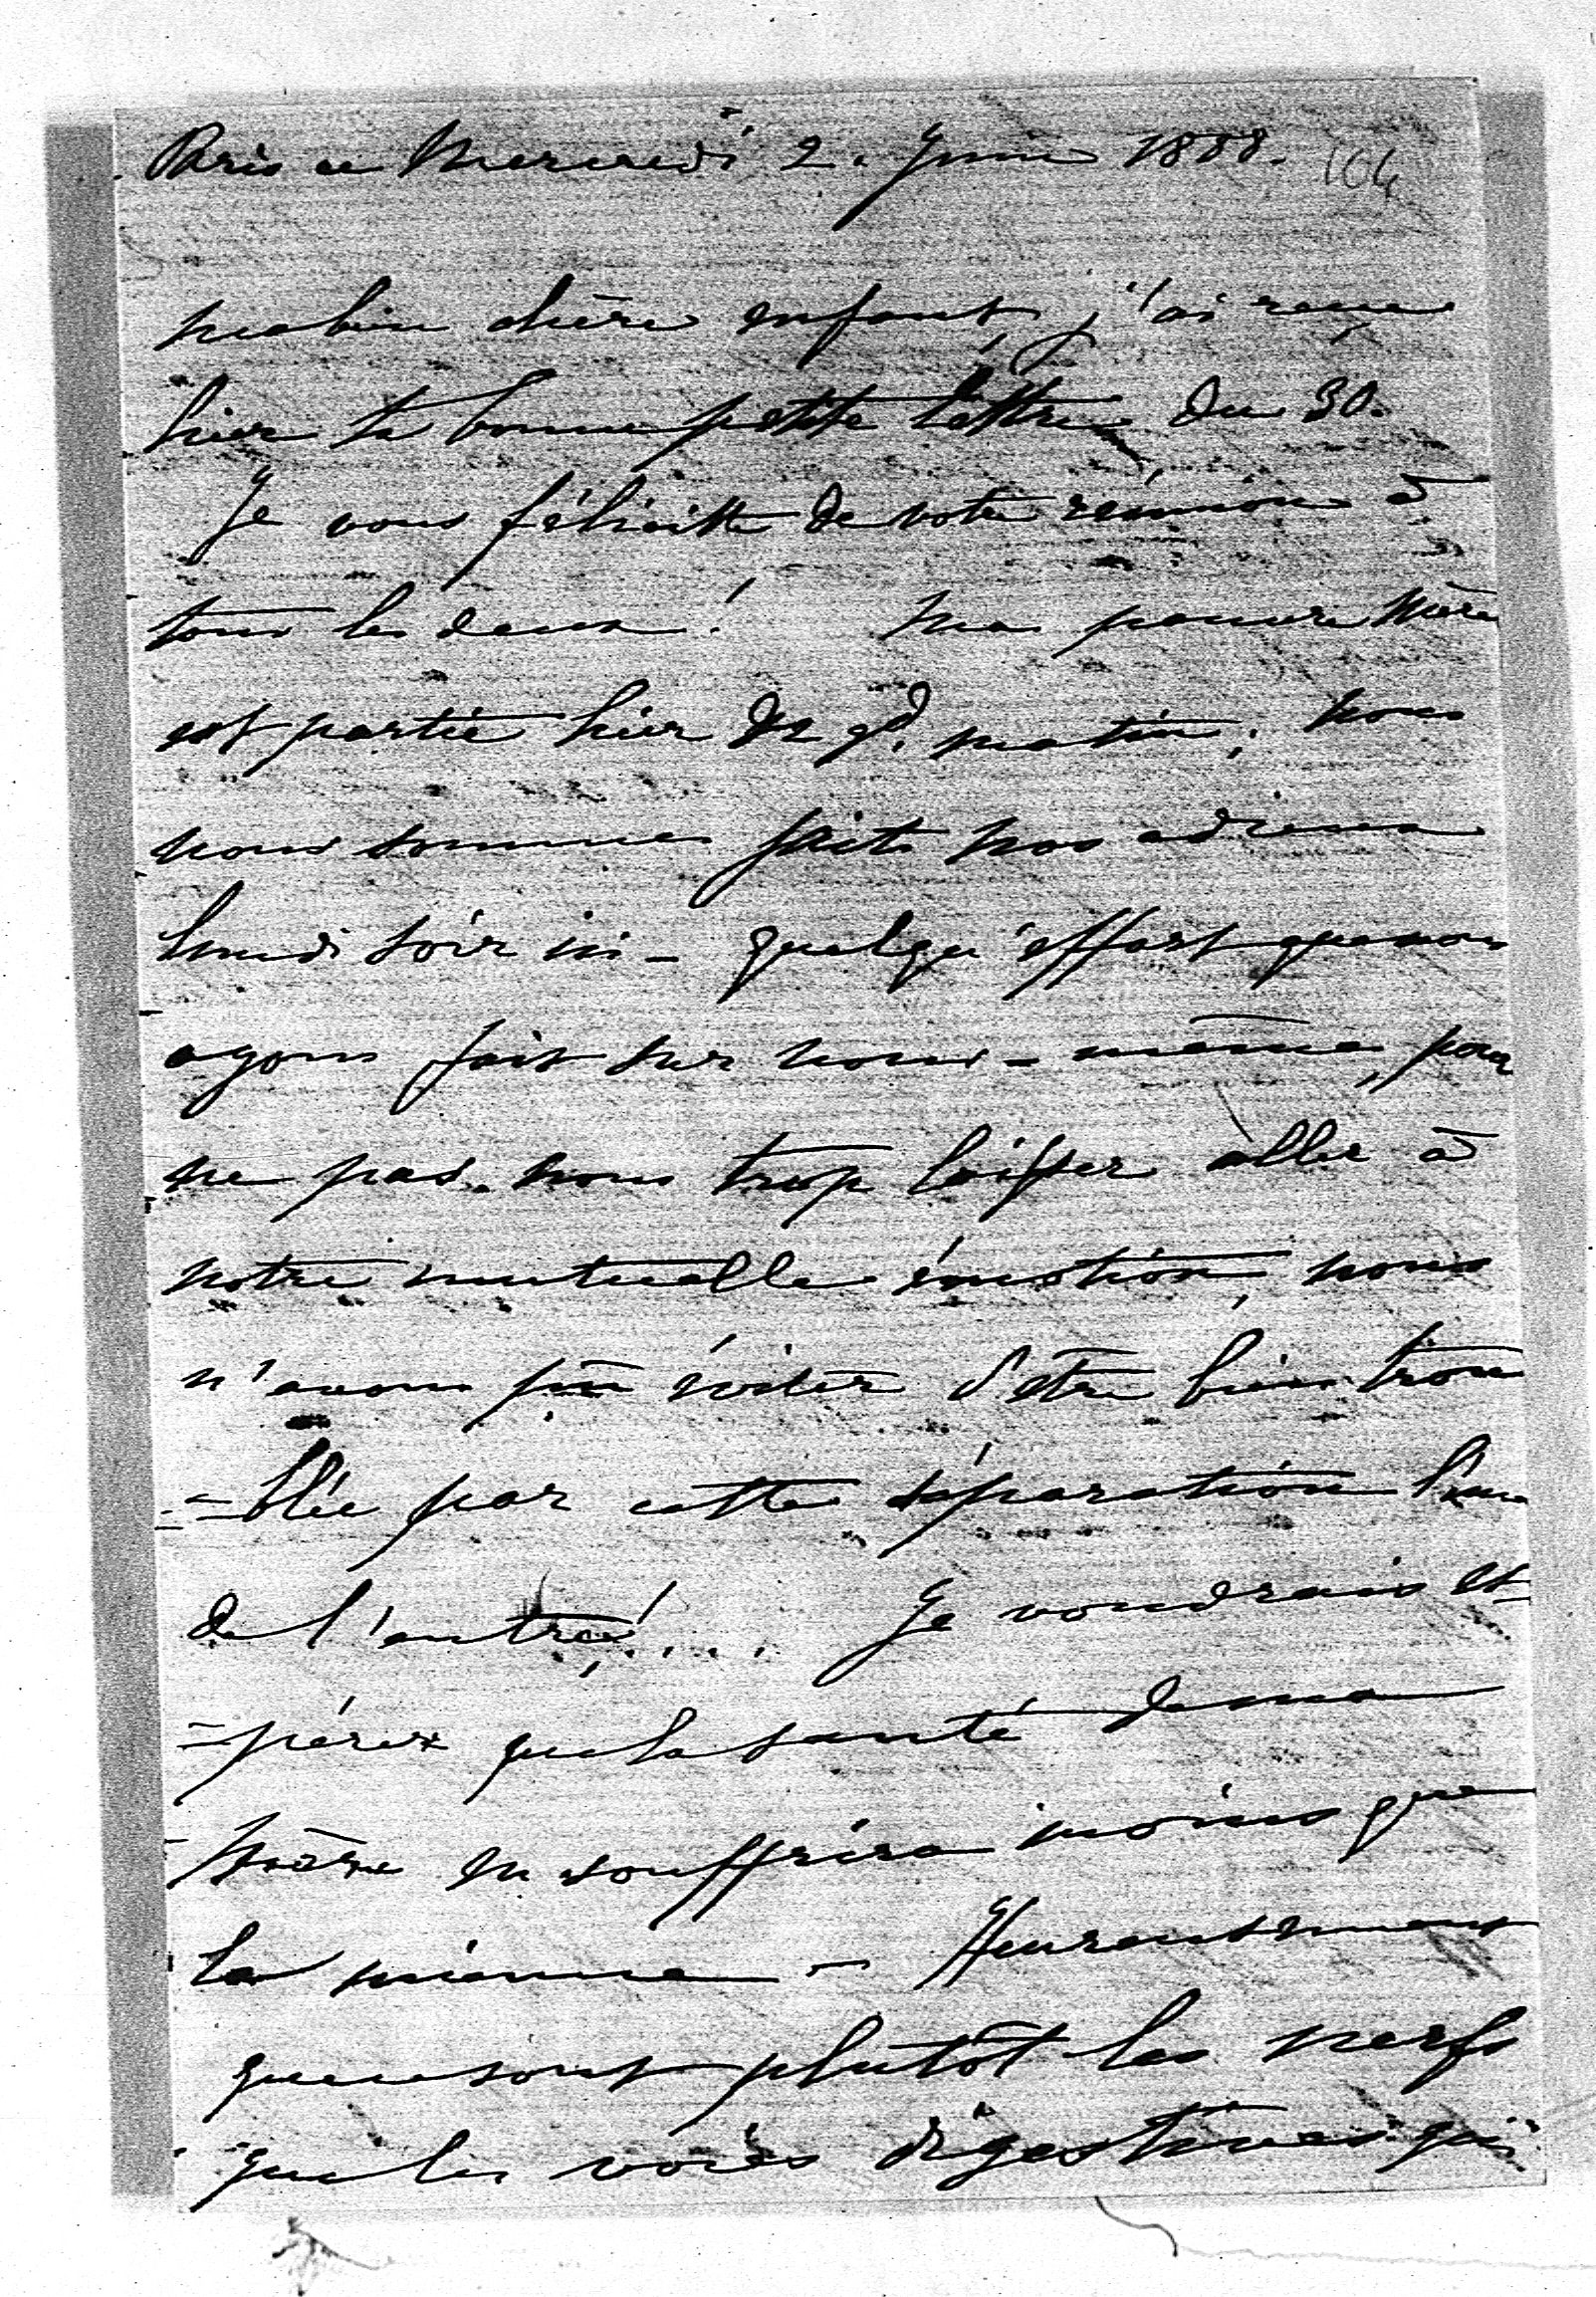 Paris ce Mercredi 2. Juin 1858. 104
ma bien chère enfant, j'ai reçue
hier ta bonne petite lettre du 30.
Je vous félicitte de votre réunion à
tous les deux! Ma pauvre Mère
est partie hier de gd. matin; nous
nous sommes faits nos adieux
lundi soir ici - quelqu'effort que nous
ayons fait sur nous-même, pour
ne pas nous trop laisser aller à
notre mutuelle émotion, nous
n'avons pû éviter d'être bien trou
=blée par cette séparation l'une
de l'autre!.... Je voudrais es
=pérer que la santé de ma
Mère en souffrira moins que
la mienne - Heureusement
que ce sont plutôt les nerfs
que les voies digestives qui